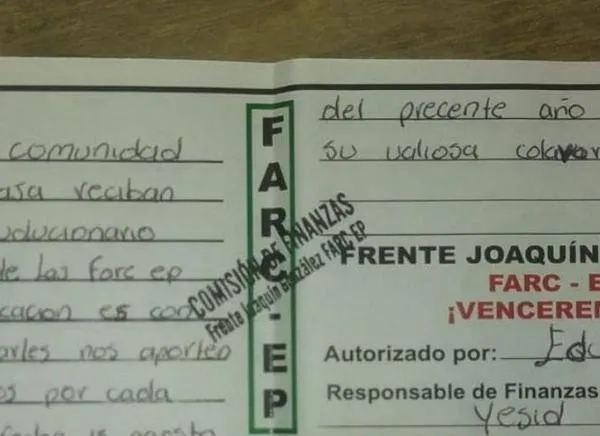 comunidad
reciban
de las farc ep
es
nos aporten
por cada
FARC-EP
COMISIÓN DE FINANZAS
Frente Joaquín González FARC EP
del precente año
su valiosa
FRENTE JOAQUÍN
FARC - E
¡VENCEREM
Autorizado por: Edu
Responsable de Finanzas
Yesid